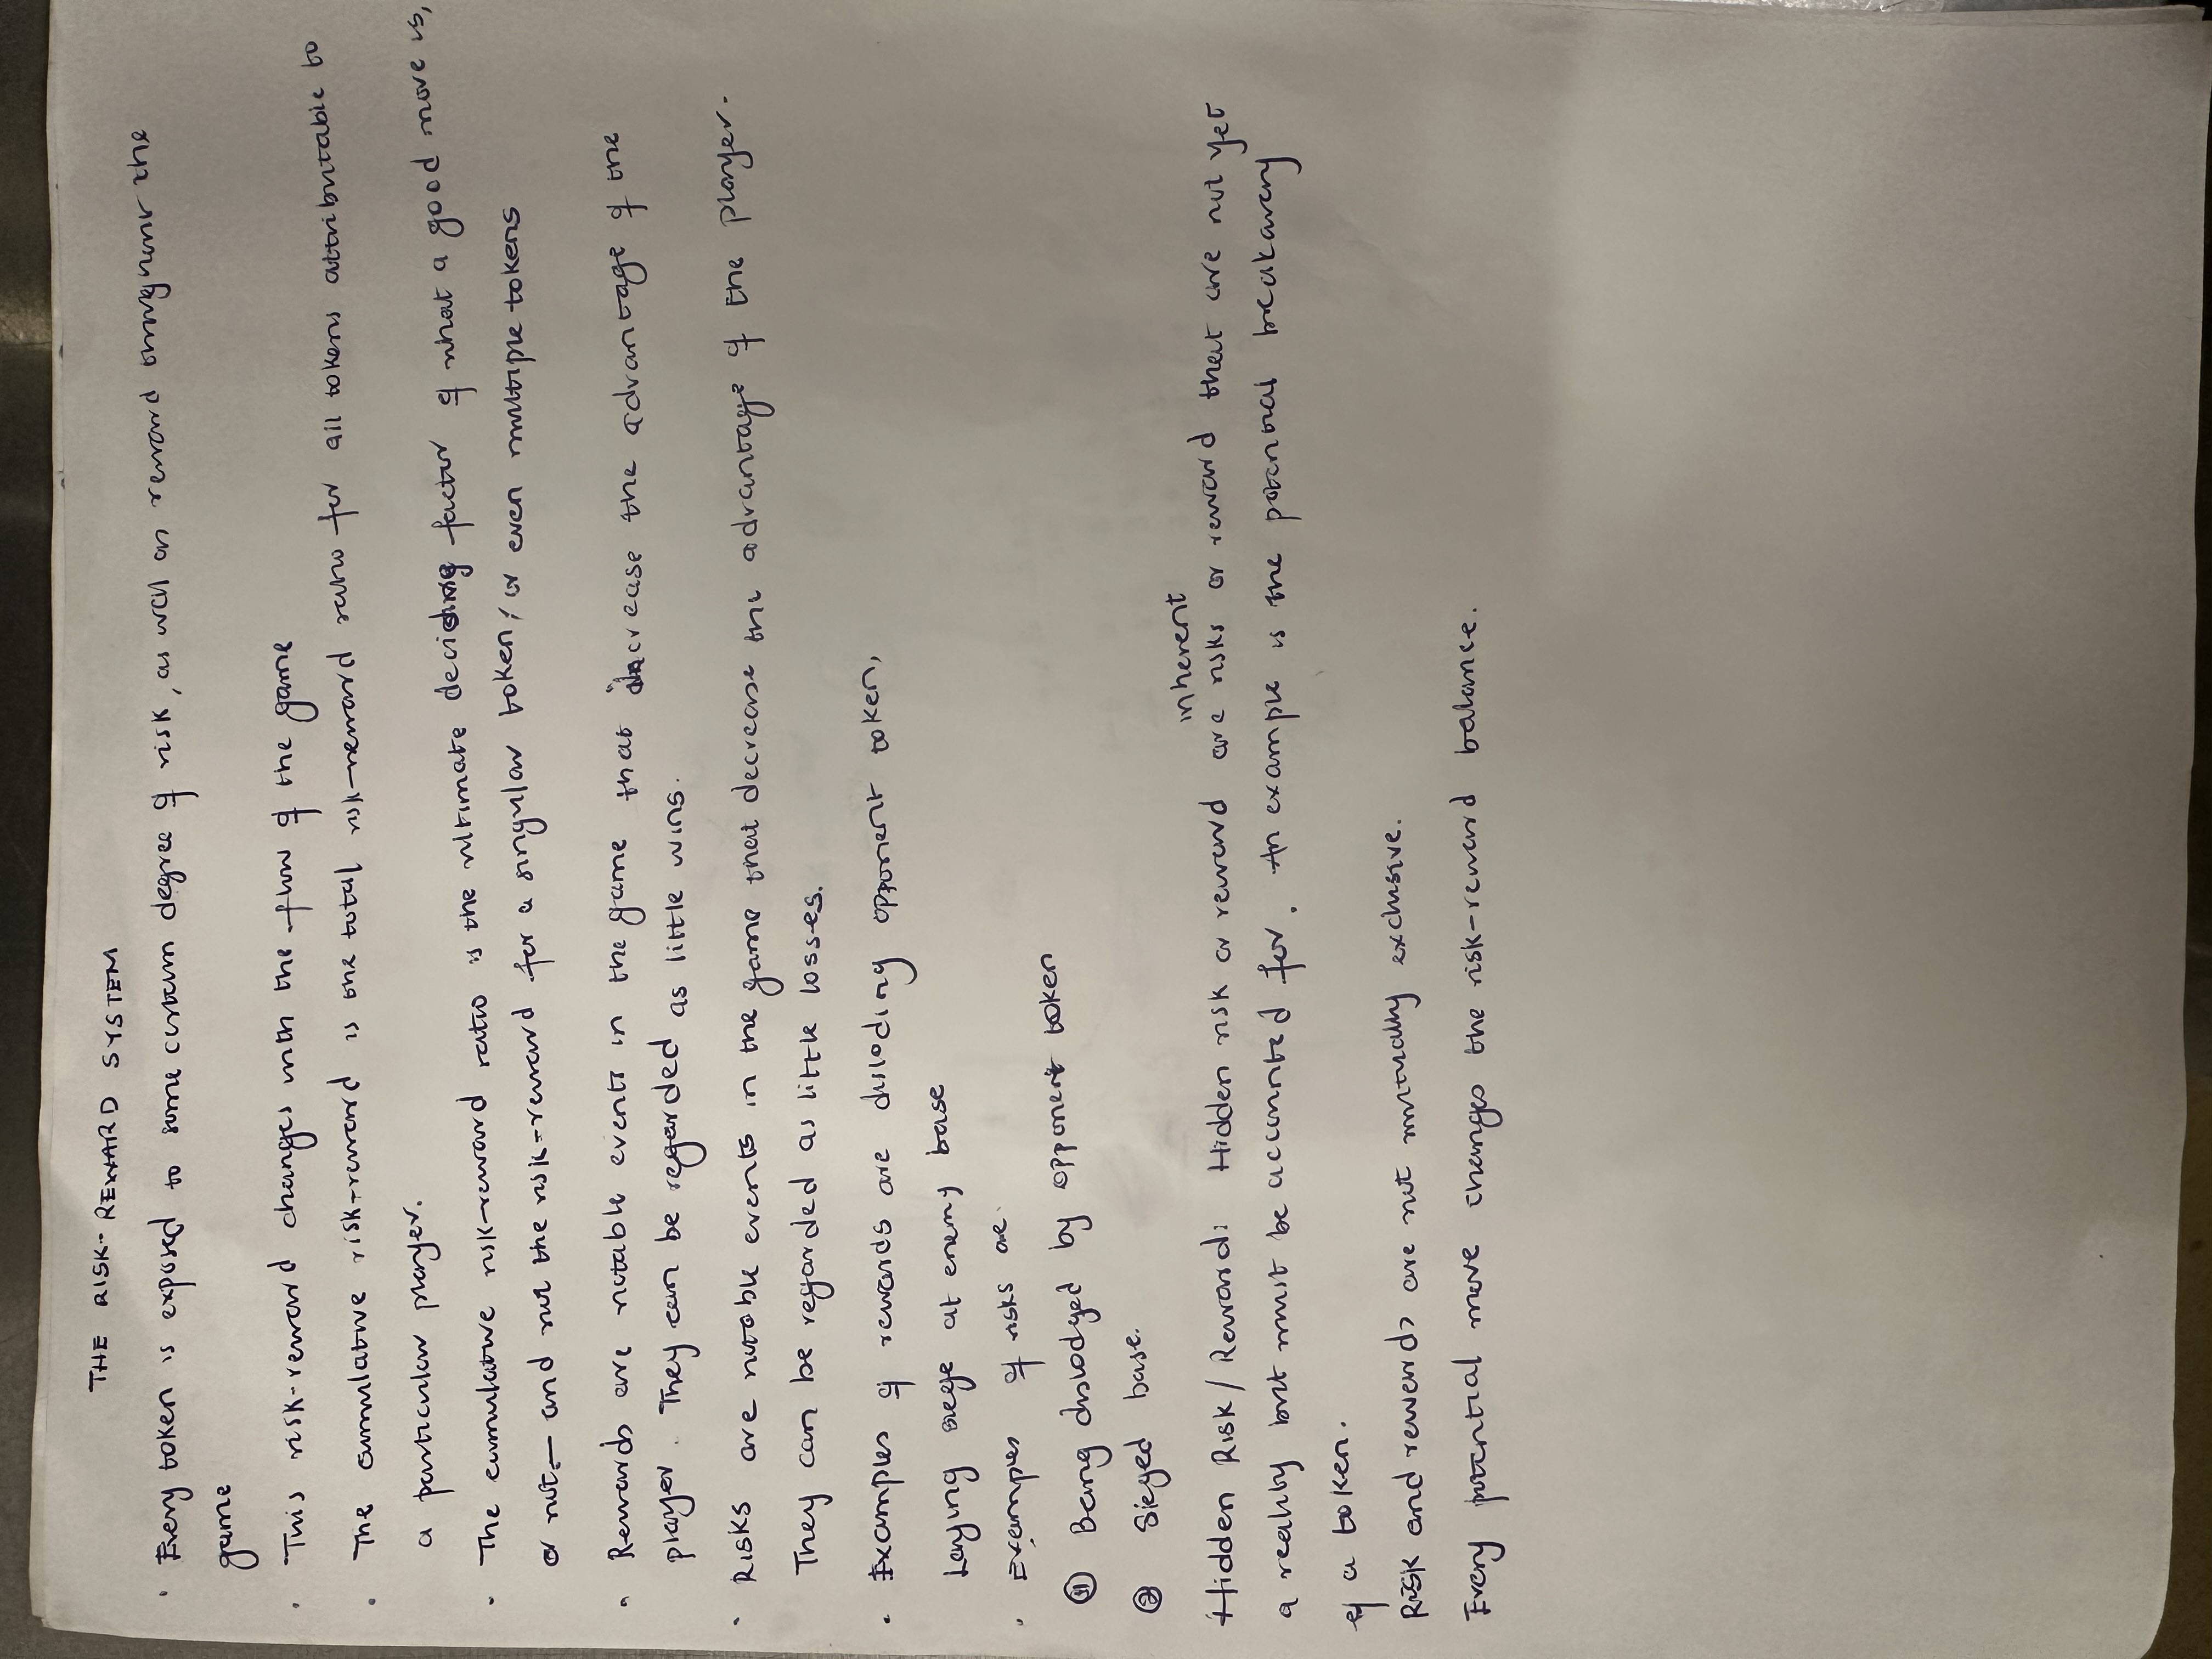 THE RISK-REWARD SYSTEM
· Every token is exposed to some certain degree of risk, as well as reward throughout the
game
· This risk-reward changes with the flow of the game
· The cumulative risk-reward is the total risk-reward ratio for all tokens attributable to
a particular player.
· The cumulative risk-reward ratio is the ultimate deciding factor of what a good move is,
or not — and not the risk-reward for a singular token, or even multiple tokens
· Rewards are notable events in the game that increase the advantage of the
player. They can be regarded as little wins.
· Risks are notable events in the game that decrease the advantage of the player.
They can be regarded as little losses.
· Examples of rewards are disloding opponent token,
Laying siege at enemy base
· Examples of risks are
① Being dislodged by opponent token
② Sieged base.
inherent
Hidden Risk/Reward: Hidden risk or reward are risks or reward that are not yet
a reality but must be accounted for. An example is the potential breakaway
of a token.
Risk and rewards are not mutually exclusive.
Every potential move changes the risk-reward balance.